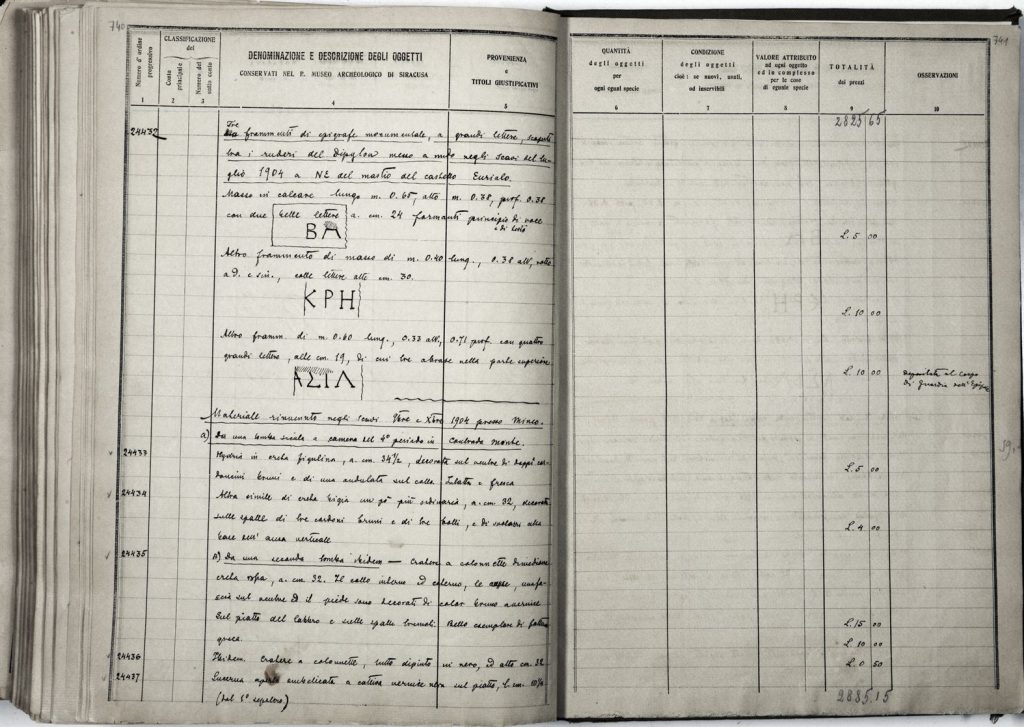 740
CLASSIFICAZIONE
del
Numero d' ordine progressivo
Conto principale
Numero del sotto conto
DENOMINAZIONE E DESCRIZIONE DEGLI OGGETTI
CONSERVATI NEL R. MUSEO ARCHEOLOGICO DI SIRACUSA
PROVENIENZA
e
TITOLI GIUSTIFICATIVI
1 2 3 4 5
Tre
24432 frammenti di epigrafe monumentale, a grandi lettere, scoperti
tra i ruderi del Dipylon messo a nudo negli scavi del lu-
glio 1904 a NE del mastio del castello Eurialo.
Masso in calcare lungo m. 0.65, alto m. 0.38, prof. 0.38
con due belle lettere a. cm. 24 formanti principio di voce
e di lato
ΒΑ
Altro frammento di masso di m. 0.40 lung., 0.38 alt, rotto
a d. e sin., colle lettere alte cm. 30.
ΚΡΗ
Altro framm. di m. 0.60 lung., 0.33 alt, 0.71 prof. con quattro
grandi lettere, alte cm. 19, di cui tre abrase nella parte superiore
ΑΣΙΛ
Materiale rinvenuto negli scavi 9bre e Xbre 1904 presso Mineo.
a) Da una tomba sicula a camera del 4° periodo in contrada Monte.
24433 Hydria in creta figulina, a. cm. 34½, decorata sul ventre di doppi cor-
doncini bruni e di una ondulata sul collo
24434 Altra simile di creta grigia un pò più ordinaria, a. cm. 32, decorata
sulle spalle di tre cordoni bruni e di tre
base dell' ansa verticale
24435 B) Da una seconda tomba ibidem — Cratere a colonnette di mediocre
creta rossa, a. cm. 32. Il collo interno ed esterno, le anse, una fa-
scia sul ventre ed il piede sono decorati di color bruno a vernice
Sul piatto del labbro e sulle spalle Bello esemplare di fattura
greca.
24436 Ibidem. Cratere a colonnette, tutto dipinto in nero, ed alto cm. 32
24437 Lucerna aperta ombelicata a cattiva vernice nera sul piatto, l. cm. 10½
(dal 1° sepolcro)
741
QUANTITÀ
degli oggetti
per
ogni egual specie
CONDIZIONE
degli oggetti
cioè: se nuovi, usati,
od inservibili
VALORE ATTRIBUITO
ad ogni oggetto
ed in complesso
per le cose
di eguale specie
TOTALITÀ
dei prezzi
OSSERVAZIONI
6 7 8 9 10
2825 65
L. 5 00
L. 10 00
L. 10 00 depositata al Corpo
di Guardia dell'
L. 5 00
L. 4 00
L. 15 00
L. 10 00
L. 0 50
2885.15